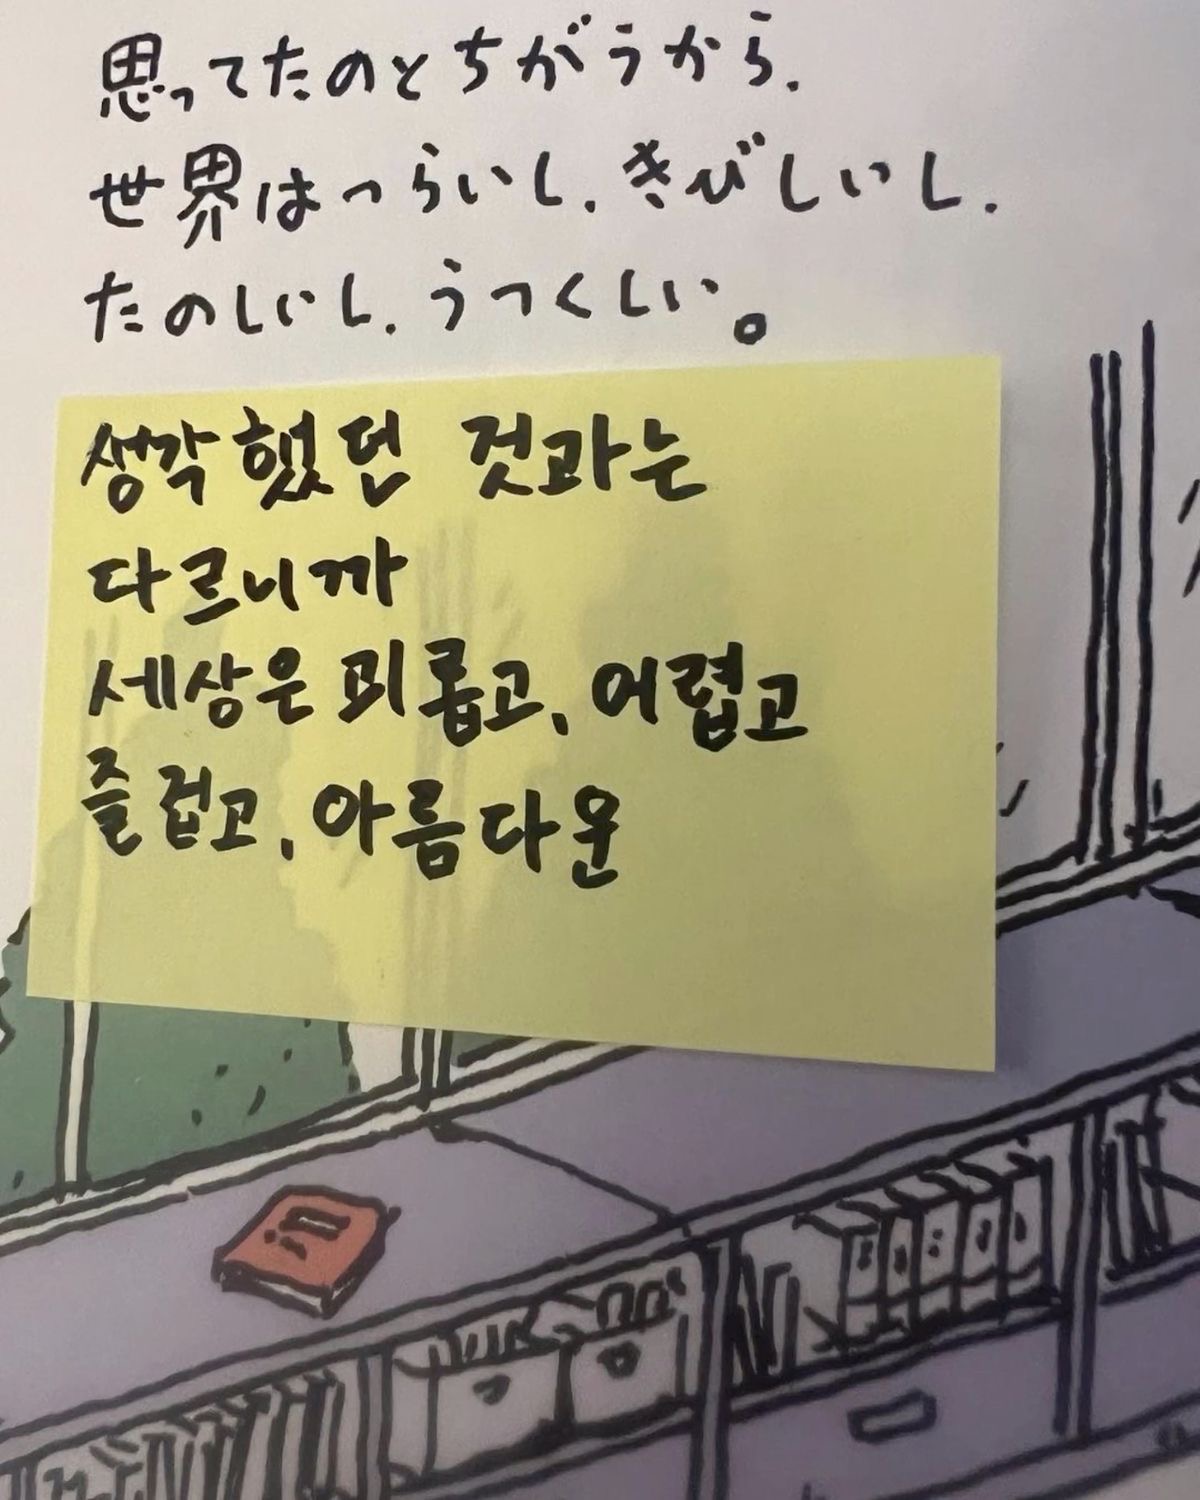 思ってたのとちがうから.
世界はつらいし.きびしいし.
たのしいし.うつくしい。
생각했던 것과는
다르니까
세상은 괴롭고, 어렵고
즐겁고, 아름다운